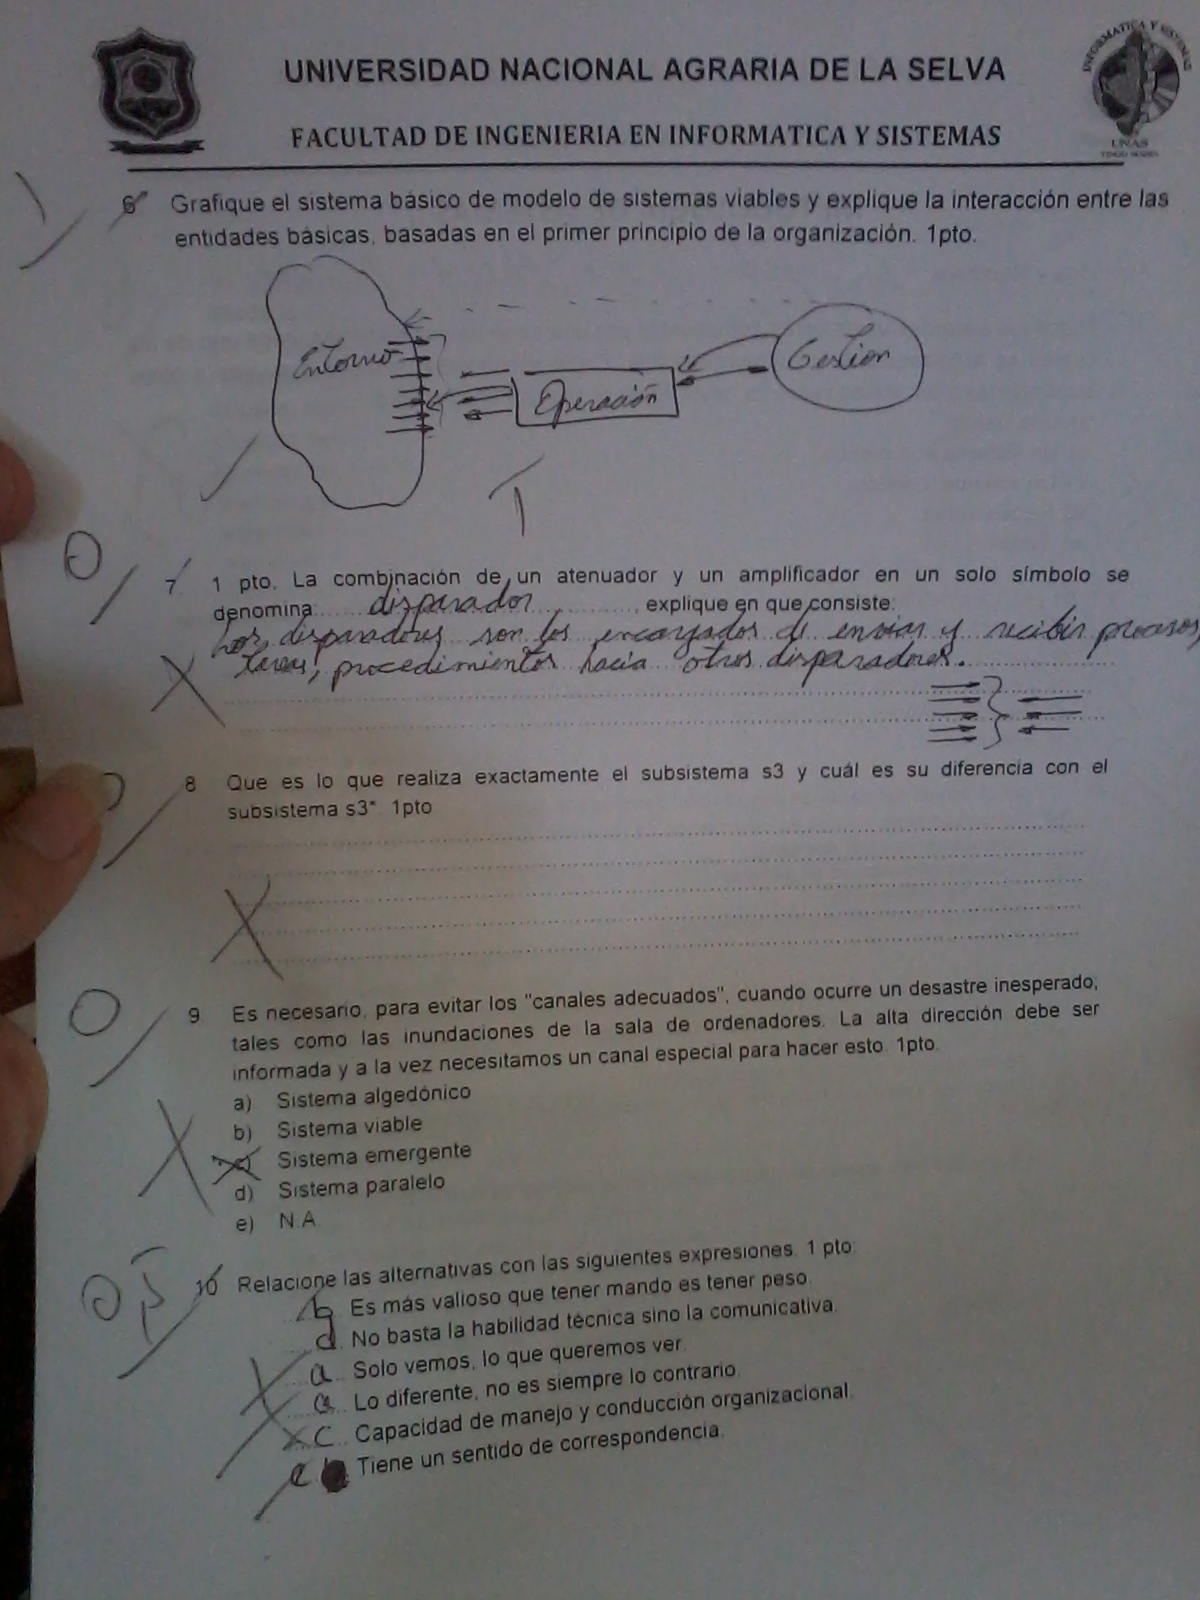 INFORMATICA Y SISTEMAS
UNAS
UNIVERSIDAD NACIONAL AGRARIA DE LA SELVA
FACULTAD DE INGENIERIA EN INFORMATICA Y SISTEMAS
6 Grafique el sistema básico de modelo de sistemas viables y explique la interacción entre las
entidades básicas, basadas en el primer principio de la organización. 1pto.
Entorno
Operación
Gestion
0
7. 1 pto. La combinación de un atenuador y un amplificador en un solo símbolo se
denomina:.....disparador............, explique en que consiste:
Los disparadores son los encargados de enviar y recibir procesos,
tareas, procedimientos hacia otros disparadores.
8 Que es lo que realiza exactamente el subsistema s3 y cuál es su diferencia con el
subsistema s3* 1pto
0
9. Es necesario, para evitar los "canales adecuados", cuando ocurre un desastre inesperado;
tales como las inundaciones de la sala de ordenadores. La alta dirección debe ser
informada y a la vez necesitamos un canal especial para hacer esto. 1pto.
a) Sistema algedónico
b) Sistema viable
c) Sistema emergente
d) Sistema paralelo
e) N.A.
10 Relacione las alternativas con las siguientes expresiones. 1 pto:
b Es más valioso que tener mando es tener peso.
d. No basta la habilidad técnica sino la comunicativa.
a.. Solo vemos, lo que queremos ver.
Lo diferente, no es siempre lo contrario.
c.. Capacidad de manejo y conducción organizacional.
e Tiene un sentido de correspondencia.